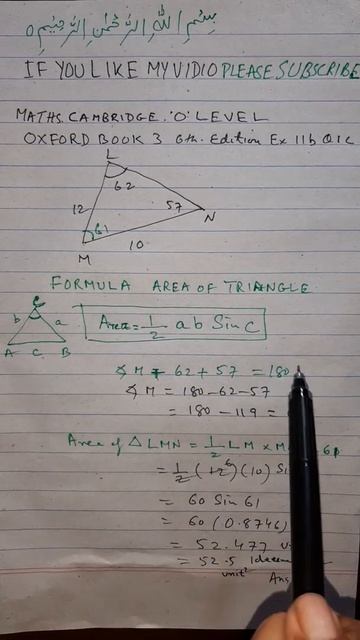 بسم الله الرحمن الرحيم
IF YOU LIKE MY VIDIO PLEASE SUBSCRIBE
MATHS. CAMBRIDGE. 'O' LEVEL
OXFORD BOOK 3 6th. Edition Ex 11b Q1c
L
62
12
57
N
61
10
M
FORMULA AREA OF TRIANGLE
C
b a
A C B
Area = 1/2 ab Sin C
∡ M + 62 + 57 = 180
∡ M = 180 - 62 - 57
= 180 - 119 =
Area of △ LMN = 1/2 LM × M
= 1/2 (12)(10) Si
6
= 60 Sin 61
= 60 (0.8746)
= 52.477
= 52.5 1 dec
unit² Ans